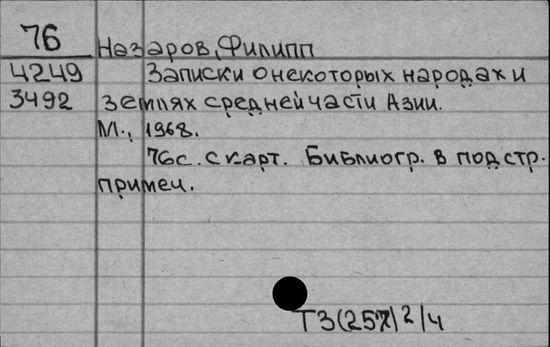 76
Назаров, Филипп
4249
Записки о некоторых народах и
3492
землях средней части Азии.
М., 1968.
76с. с карт. Библиогр. в подстр.
примеч.
Т3(257)2/4